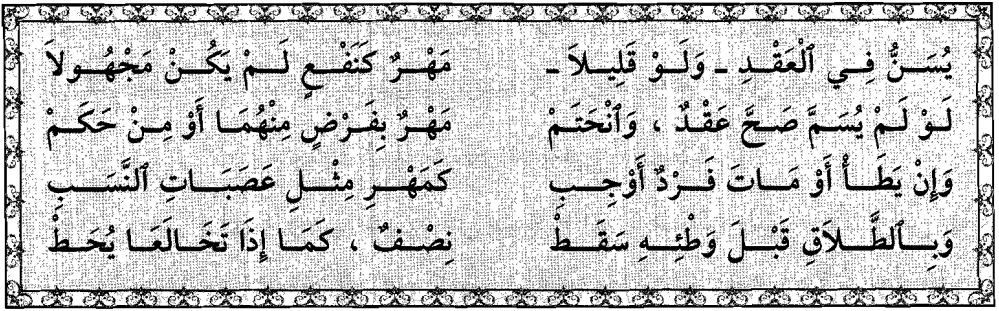 يُسَــنُّ فِــي ٱلْعَقْــدِ ـ وَلَــوْ قَلِيــلاً ـ مَهْــرٌ كَنَفْــعٍ لَــمْ يَكُــنْ مَجْهُــولاَ
لَوْ لَمْ يُسَمَّ صَحَّ عَقْدٌ ، وَٱنْحَتَمْ مَهْرٌ بِفَرْضٍ مِنْهُمَا أَوْ مِنْ حَكَمْ
وَإِنْ يَطَأْ أَوْ مَاتَ فَرْدٌ أَوْجِبِ كَمَهْرِ مِثْلِ عَصَبَاتِ ٱلنَّسَبِ
وَبِٱلطَّلاَقِ قَبْلَ وَطْئِهِ سَقَطْ نِصْفٌ ، كَمَا إِذَا تَخَالَعَا يُحَطْ